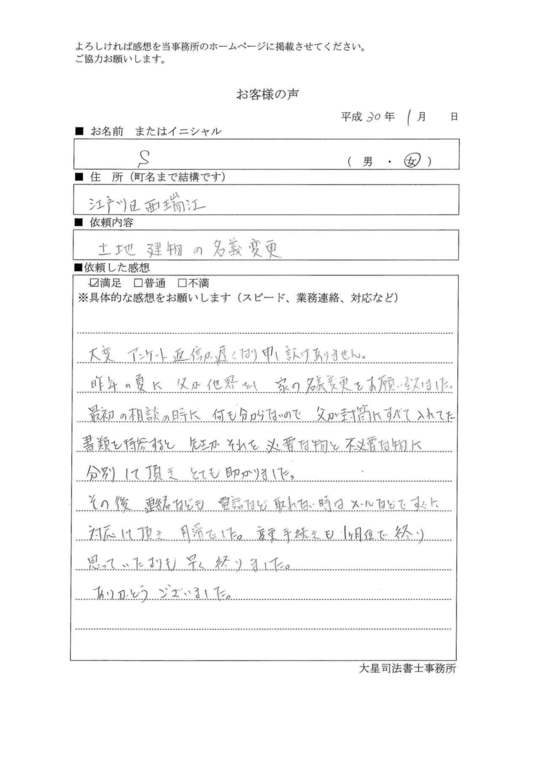 よろしければ感想を当事務所のホームページに掲載させてください。
ご協力お願いします。
お客様の声
平成 30 年 1 月 日
■ お名前 またはイニシャル
S ( 男 ・ 女 )
■ 住 所（町名まで結構です）
江戸川区西瑞江
■ 依頼内容
土地 建物 の 名義変更
■依頼した感想
☑満足 □普通 □不満
※具体的な感想をお願いします（スピード、業務連絡、対応など）
大変 アンケート 返信が遅くなり申し訳ありません。
昨年の夏に 父が他界し 家の名義変更をお願い致しました。
最初の相談の時に 何も分からないので 父が封筒にすべて入れてた
書類を持参すると 先生が それを 必要な物と不必要な物に
分別して頂き とても助かりました。
その後 連絡なども 電話など取れない時は メールなどですぐに
対応して頂き 円滑でした。変更手続きも1ヶ月位で終り
思っていたよりも 早く 終りました。
ありがとう ございました。
大星司法書士事務所